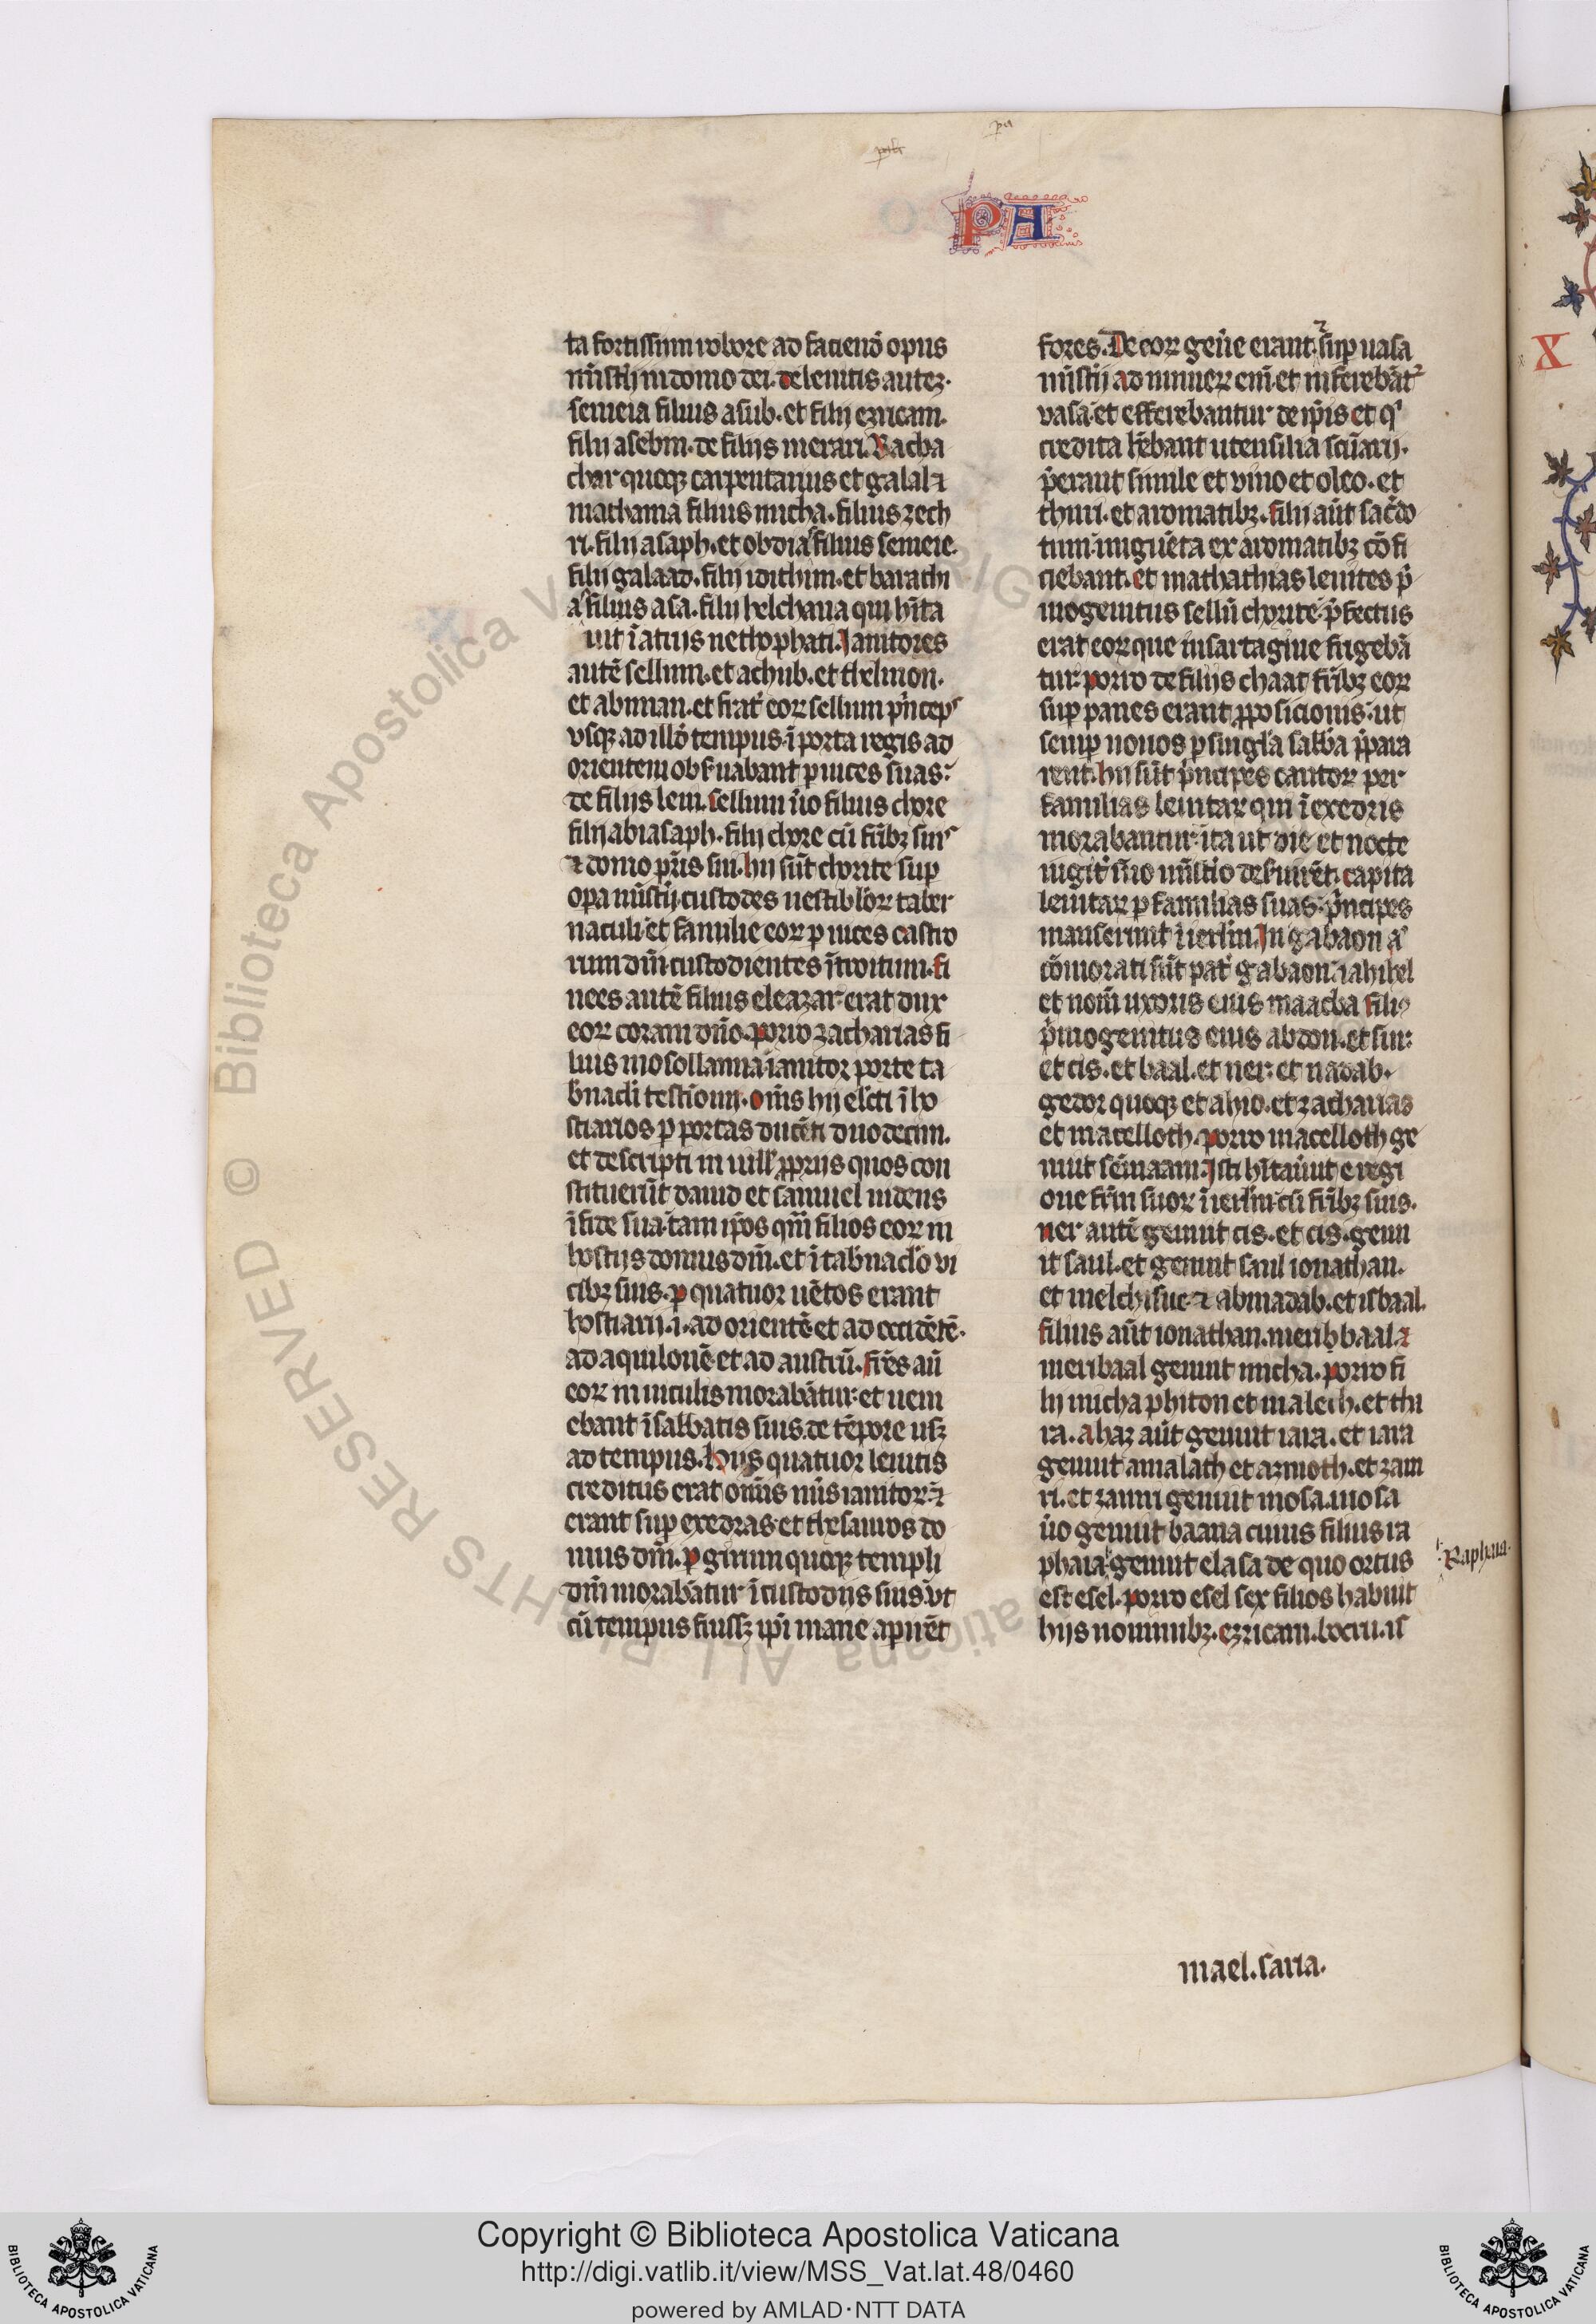 PA
ta fortissimi robore ad faciend̄ opus
mīstīj in domo dei. de leuitis autez.
semeia filius asub. et filij ezricam.
filij asebim. de filijs merari. Bacba
char quoqꝫ carpentarius et galal ⁊
mathania filius micha. filius zech
ri. filij asaph. et obdia filius semeie.
filij galaad. filij idithim. et barachi
a filius asa. filij helchana qui hīta
uit ī atrijs nethophati. Janitores
autē sellum. et achub. et thelmon.
et ahiman. et frat̄ eoꝝ sellum p̄nceps
vsqꝫ ad illd̄ tempus. ī porta regis ad
orientem obẜuabant ꝑ uices suas:
de filijs leui. sellum ūo filius chore
filij abiasaph. filij chore cū fr̄ibꝫ suis
⁊ domo pr̄is sui. hij sūt chorite suꝑ
oꝑa mīstīj. custodes uestiblōꝝ taber
naculi. et familie eoꝝ ꝑ uices castro
rum dn̄i. custodientes ītroitum. fi
nees autē filius eleazar. erat dux
eoꝝ coram dn̄o. porro zacharias fi
lius mosollamia ianitor porte ta
b̄nacli testīonij. om̄s hij elc̄ti ī ho
stiarios ꝑ portas ducēti duodecim.
et descripti in uill̄ ꝓprijs quos con
stituerūt dauid et samuel uidens
ī fide sua. tam ip̄os qm̄ filios eoꝝ in
hostijs domus dn̄i. et ī tab̄naclō vi
cibꝫ suis. ꝑ quatuor uētos erant
hostiarij. i. ad orientē et ad occidētē.
ad aquilonē et ad austrū. fr̄es aū
eoꝝ in uiculis morabātur. et ueni
ebant ī sabbatis suis. de tēpore usꝫ
ad tempus. Hijs quatuor leuitis
creditus erat om̄is nūs ianitoꝝ. ⁊
erant suꝑ exedras. et thesauros do
mus dn̄i. ꝑ girum quoqꝫ templi
dn̄i morabātur ī custodijs suis. vt
cū tempus fuissꝫ ip̄i mane aperirēt
fores. De eoꝝ gen̄e erant. ⁊ suꝑ uasa
mīstīj ad numeꝝ eni. et inferebāt̄
vasa et efferebantur de ip̄is et q̄
credita hēbant utensilia sc̄uarij.
p̄erant simile et vino et oleo. et
thuri. et aromatibꝫ. filij aūt sac̄do
tum. unguēta ex aromatibꝫ cōfi
ciebant. et mathathias leuites p̄
mogenitus sellū chorite. p̄fectus
erat eoꝝ que in sartagine frigebā
tur. porro de filijs chaat fr̄ibꝫ eoꝝ
suꝑ panes erant ꝓposicionis. ut
semꝑ nouos ꝑ singl̄a sabb̄a p̄para
rent. hij sūt p̄ncipes cantoꝝ per
familias leuitaꝝ qui ī exedris
morabantur. ita ut die et nocte
iugit̄ suo mīstīo deẜuirēt. capita
leuitaꝝ ꝑ familias suas. p̄ncipes
manserunt ī ierlm̄. In gabaon a
cōmorati sūt pat̄ gabaon. iahihel
et nom̄ uxoris eius maacba filius
p̄mogenitus eius abdon. et sur:
et cis. et baal. et ner. et nadab.
gedor quoqꝫ et ahio. et zacharias
et macelloth. porro macelloth ge
nuit semaam. Isti hītauūt e regi
one fr̄m suoꝝ ī ierlm̄. cū fr̄ibꝫ suis.
ner autē genuit cis. et cis. genu
it saul. et genuit saul ionathan.
et melchisue ⁊ abinadab. et isbaal.
filius aūt ionathan. meribbaal. ⁊
meribaal genuit micha. porro fi
lij micha phiton et malech. et thi
ra. ahaz aūt genuit iara. et iara
genuit amalath et azmoth. et zam
ri. et zamri genuit mosa. mosa
ūo genuit baana cuius filius ra
phaia genuit elasa de quo ortus
Raphaia.
est esel. porro esel sex filios habuit
hijs nominibꝫ. ezricam. bocru. is
mael. saria.
X
© Biblioteca Apostolica Vaticana ALL RIGHTS RESERVED
Copyright © Biblioteca Apostolica Vaticana
http://digi.vatlib.it/view/MSS_Vat.lat.48/0460
powered by AMLAD·NTT DATA
BIBLIOTECA APOSTOLICA VATICANA
BIBLIOTECA APOSTOLICA VATICANA